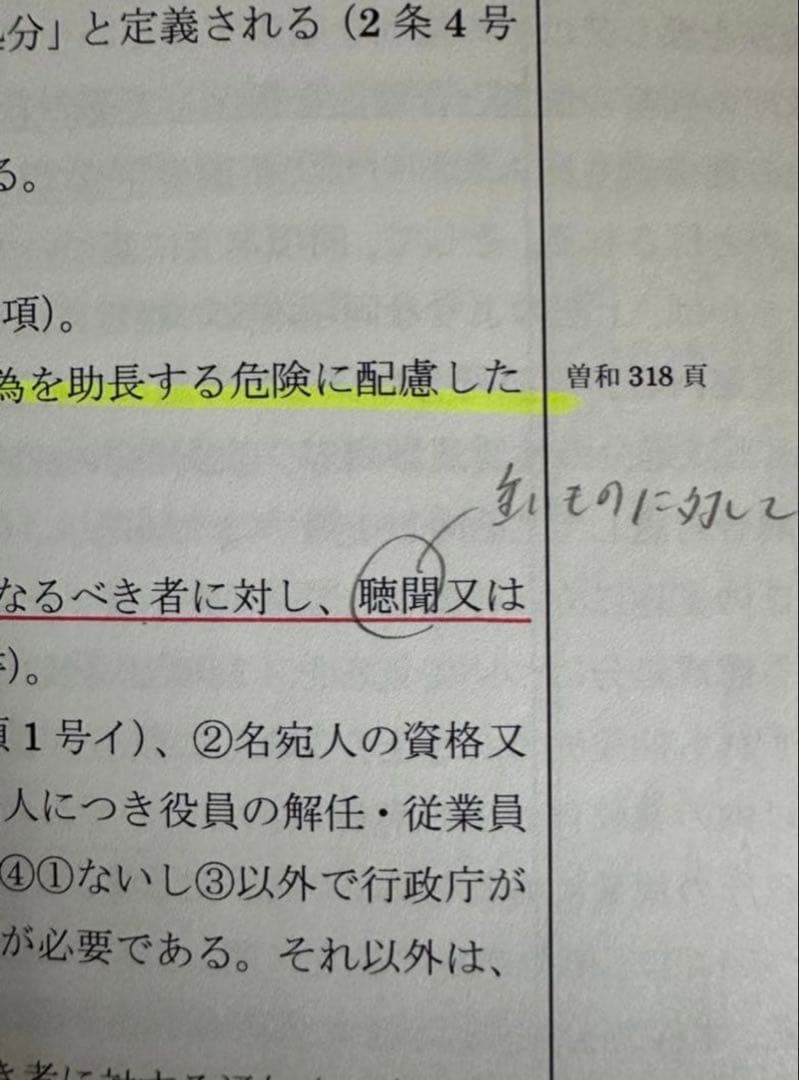 処分」と定義される（2条4号
る。
項）。
為を助長する危険に配慮した
曽和318頁
重いものに対して
なるべき者に対し、聴聞又は
等）。
項1号イ）、②名宛人の資格又
人につき役員の解任・従業員
④①ないし③以外で行政庁が
が必要である。それ以外は、